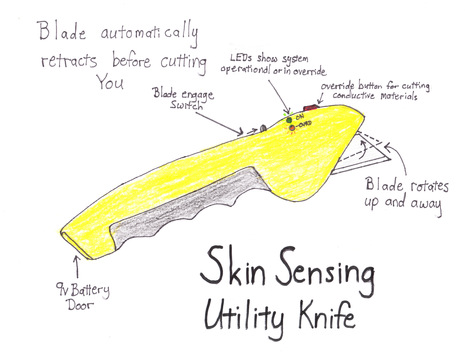 Blade automatically
retracts before cutting
You
LEDs show system
operational or in override
override button for cutting
conductive materials
Blade engage
Switch
ON
OVRD
Blade rotates
up and away
9v Battery
Door
Skin Sensing
Utility Knife